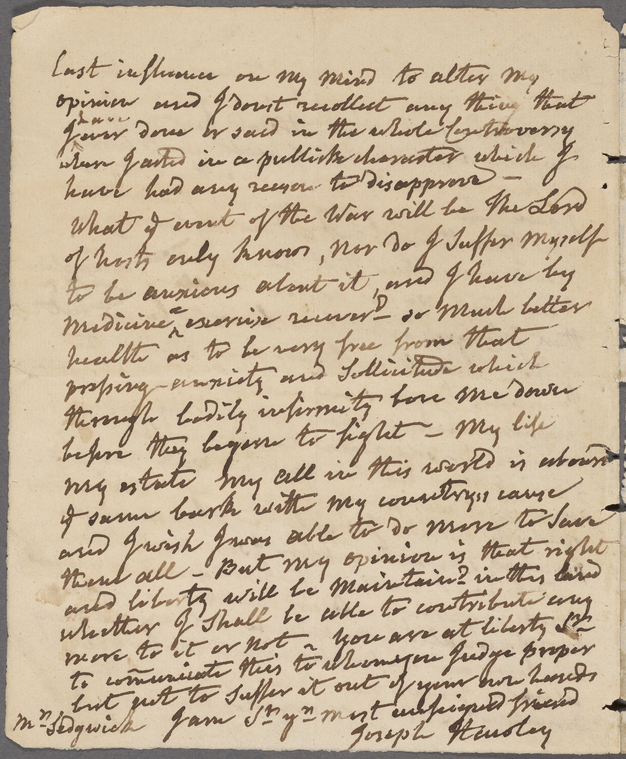 least influence on my mind to alter my
opinion and I don't recollect any thing that
I have ever done or said in the whole Controversy
when I acted in a publick character which I
have had any reason to disapprove —
What ye event of the War will be the Lord
of hosts only knows, nor do I Suffer myself
to be anxious about it, and I have by
medicine & exercise recover'd so much better
health as to be very free from that
pressing anxiety and Sollicitude which
through bodily infirmity bore me down
before they began to fight — My life
my estate my all in this world is aboard
ye same bark with my country's cause
and I wish I was able to do more to Save
them all — But my opinion is that right
and liberty will be Maintain'd in this land
whether I Shall be able to contribute any
more to it or not — you are at liberty Sr
to communicate this to whome you Judge proper
but not to Suffer it out of your own hands
I am Sr yr most unfeigned friend
Mr Sedgwick Joseph Hawley